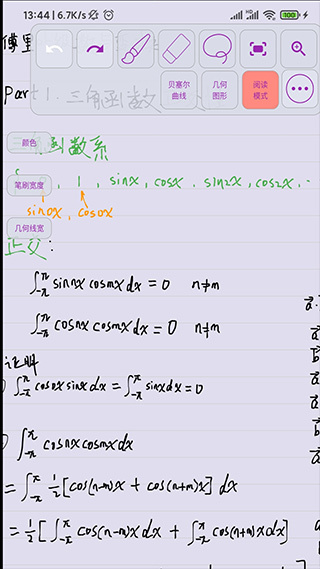 13:44 | 6.7K/s
HD
100
傅里
贝塞尔
曲线
几何
图形
阅读
模式
Part 1. 三角函数
颜色
函数系
笔刷宽度
, 1 , sinx, cosx, sin2x, cos2x, ..
sin0x, cos0x
几何线宽
正交:
∫_{-π}^{π} sinnx cosmx dx = 0 n≠m
∫_{-π}^{π} cosnx cosmx dx = 0 n≠m
证明
∫_{-π}^{π} cos0x sinx dx = ∫_{-π}^{π} sinx dx = 0
∫_{-π}^{π} cosnx cosmx dx
= ∫_{-π}^{π} 1/2 [cos(n-m)x + cos(n+m)x] dx
= 1/2 [∫_{-π}^{π} cos(n-m)x dx + ∫_{-π}^{π} cos(n+m)x dx]